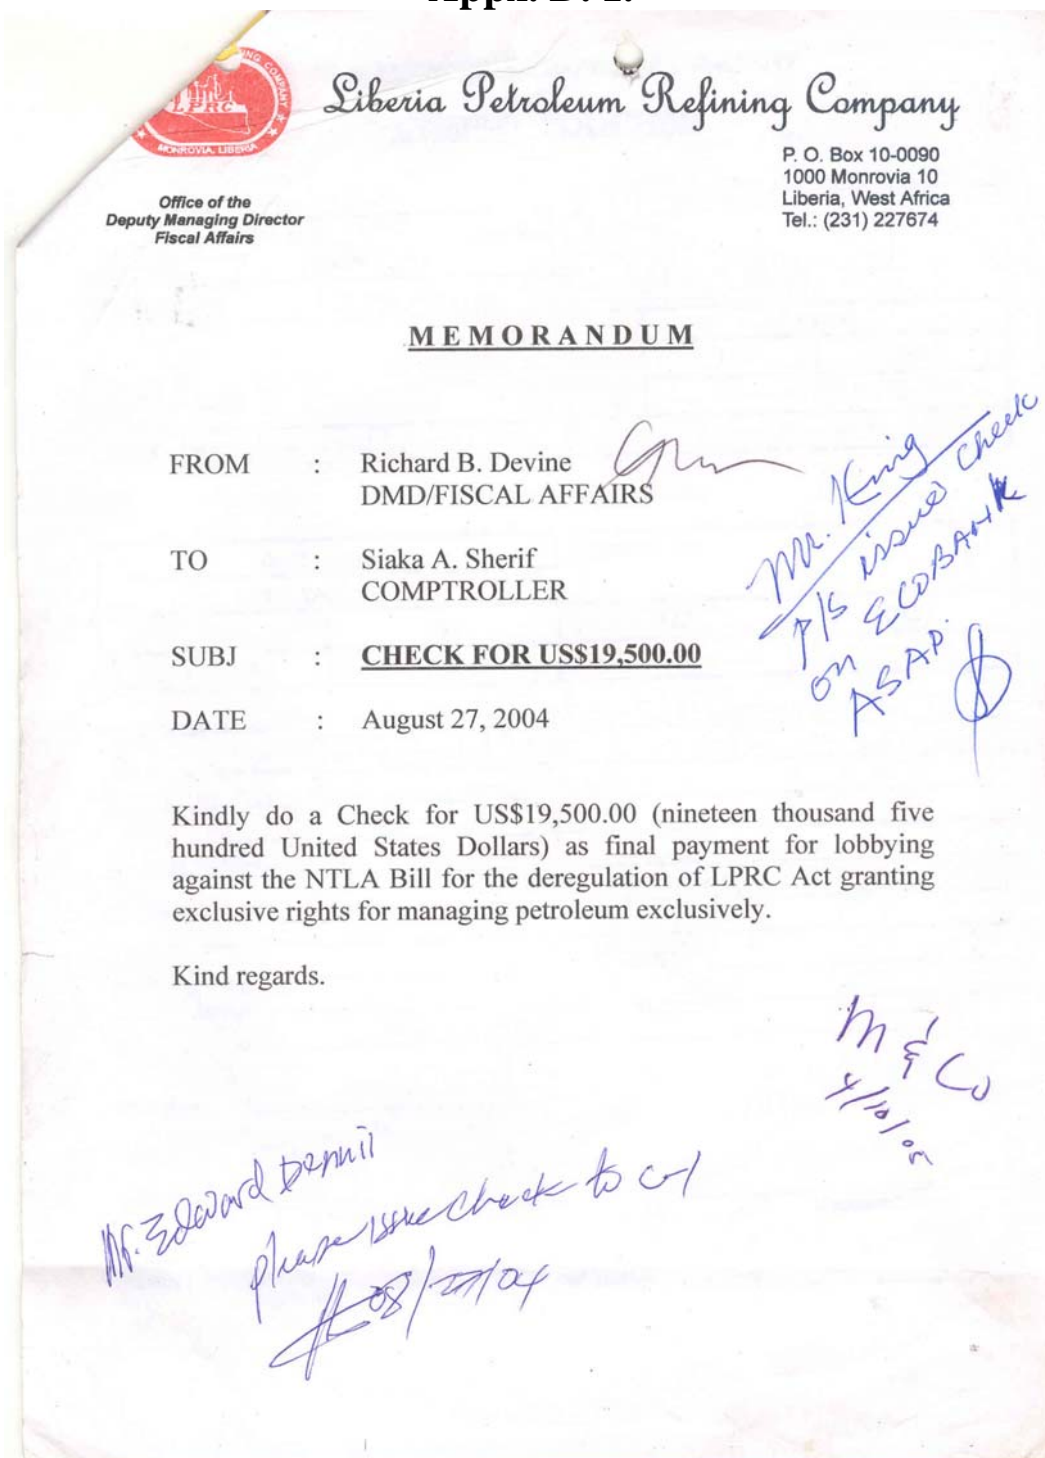 LPRC
MONROVIA, LIBERIA
Liberia Petroleum Refining Company
P. O. Box 10-0090
1000 Monrovia 10
Liberia, West Africa
Tel.: (231) 227674
Office of the
Deputy Managing Director
Fiscal Affairs
MEMORANDUM
FROM : Richard B. Devine
DMD/FISCAL AFFAIRS
TO : Siaka A. Sherif
COMPTROLLER
SUBJ : CHECK FOR US$19,500.00
DATE : August 27, 2004
Mr. King
p/s issue check
on ECOBANK
ASAP.
Kindly do a Check for US$19,500.00 (nineteen thousand five
hundred United States Dollars) as final payment for lobbying
against the NTLA Bill for the deregulation of LPRC Act granting
exclusive rights for managing petroleum exclusively.
Kind regards.
M & Co
Mr. Edward
please issue check to
08/27/04